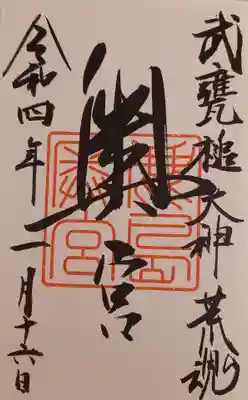 武甕槌大神 荒魂
奥宮
鹿島
奥宮
令和四年二月十六日